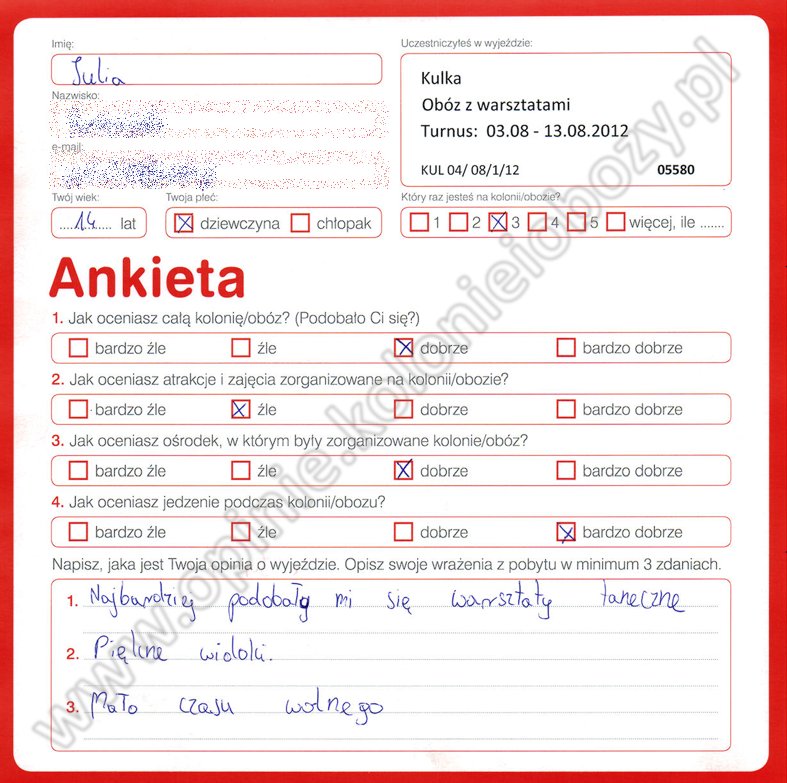 Imię:
Julia
Nazwisko:
e-mail:
Twój wiek:
14 lat
Twoja płeć:
dziewczyna chłopak
Uczestniczyłeś w wyjeździe:
Kulka
Obóz z warsztatami
Turnus: 03.08 - 13.08.2012
KUL 04/ 08/1/12 05580
Który raz jesteś na kolonii/obozie?
1 2 3 4 5 więcej, ile .......
Ankieta
1. Jak oceniasz całą kolonię/obóz? (Podobało Ci się?)
bardzo źle źle dobrze bardzo dobrze
2. Jak oceniasz atrakcje i zajęcia zorganizowane na kolonii/obozie?
bardzo źle źle dobrze bardzo dobrze
3. Jak oceniasz ośrodek, w którym były zorganizowane kolonie/obóz?
bardzo źle źle dobrze bardzo dobrze
4. Jak oceniasz jedzenie podczas kolonii/obozu?
bardzo źle źle dobrze bardzo dobrze
Napisz, jaka jest Twoja opinia o wyjeździe. Opisz swoje wrażenia z pobytu w minimum 3 zdaniach.
1. Najbardziej podobały mi się warsztaty taneczne
2. Piękne widoki.
3. Mało czasu wolnego
www.opinie.kolonieiobozy.pl